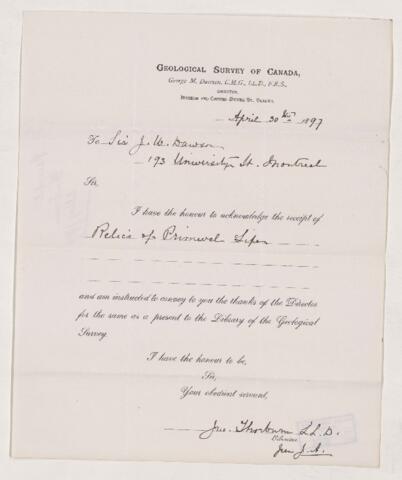 GEOLOGICAL SURVEY OF CANADA,
George M. Dawson, C.M.G., LL.D., F.R.S.,
DIRECTOR,
MUSEUM AND OFFICES SUSSEX ST., OTTAWA.
April 30th 1897
To Sir J. W. Dawson
193 University St. Montreal
Sir,
I have the honour to acknowledge the receipt of
Relics of Primeval Life
and am instructed to convey to you the thanks of the Director
for the same as a present to the Library of the Geological
Survey.
I have the honour to be,
Sir,
Your obedient servant,
Jno. Thorburn LL.D.
Librarian
per J.A.